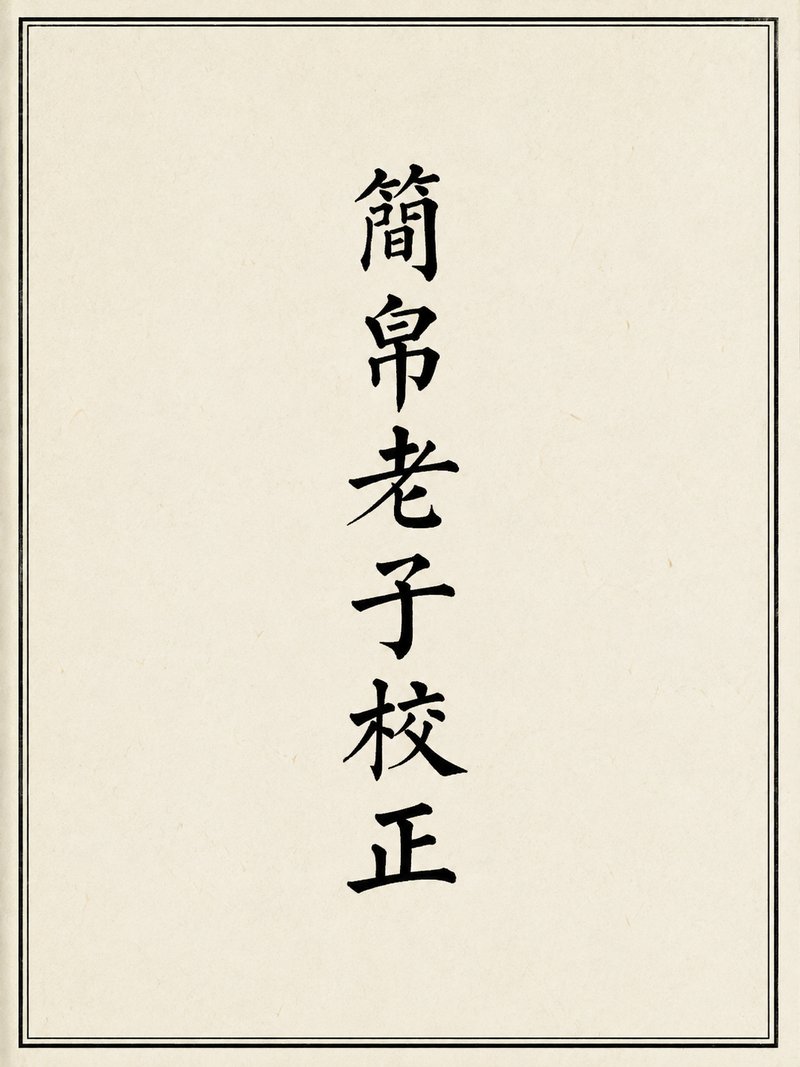 簡帛老子校正